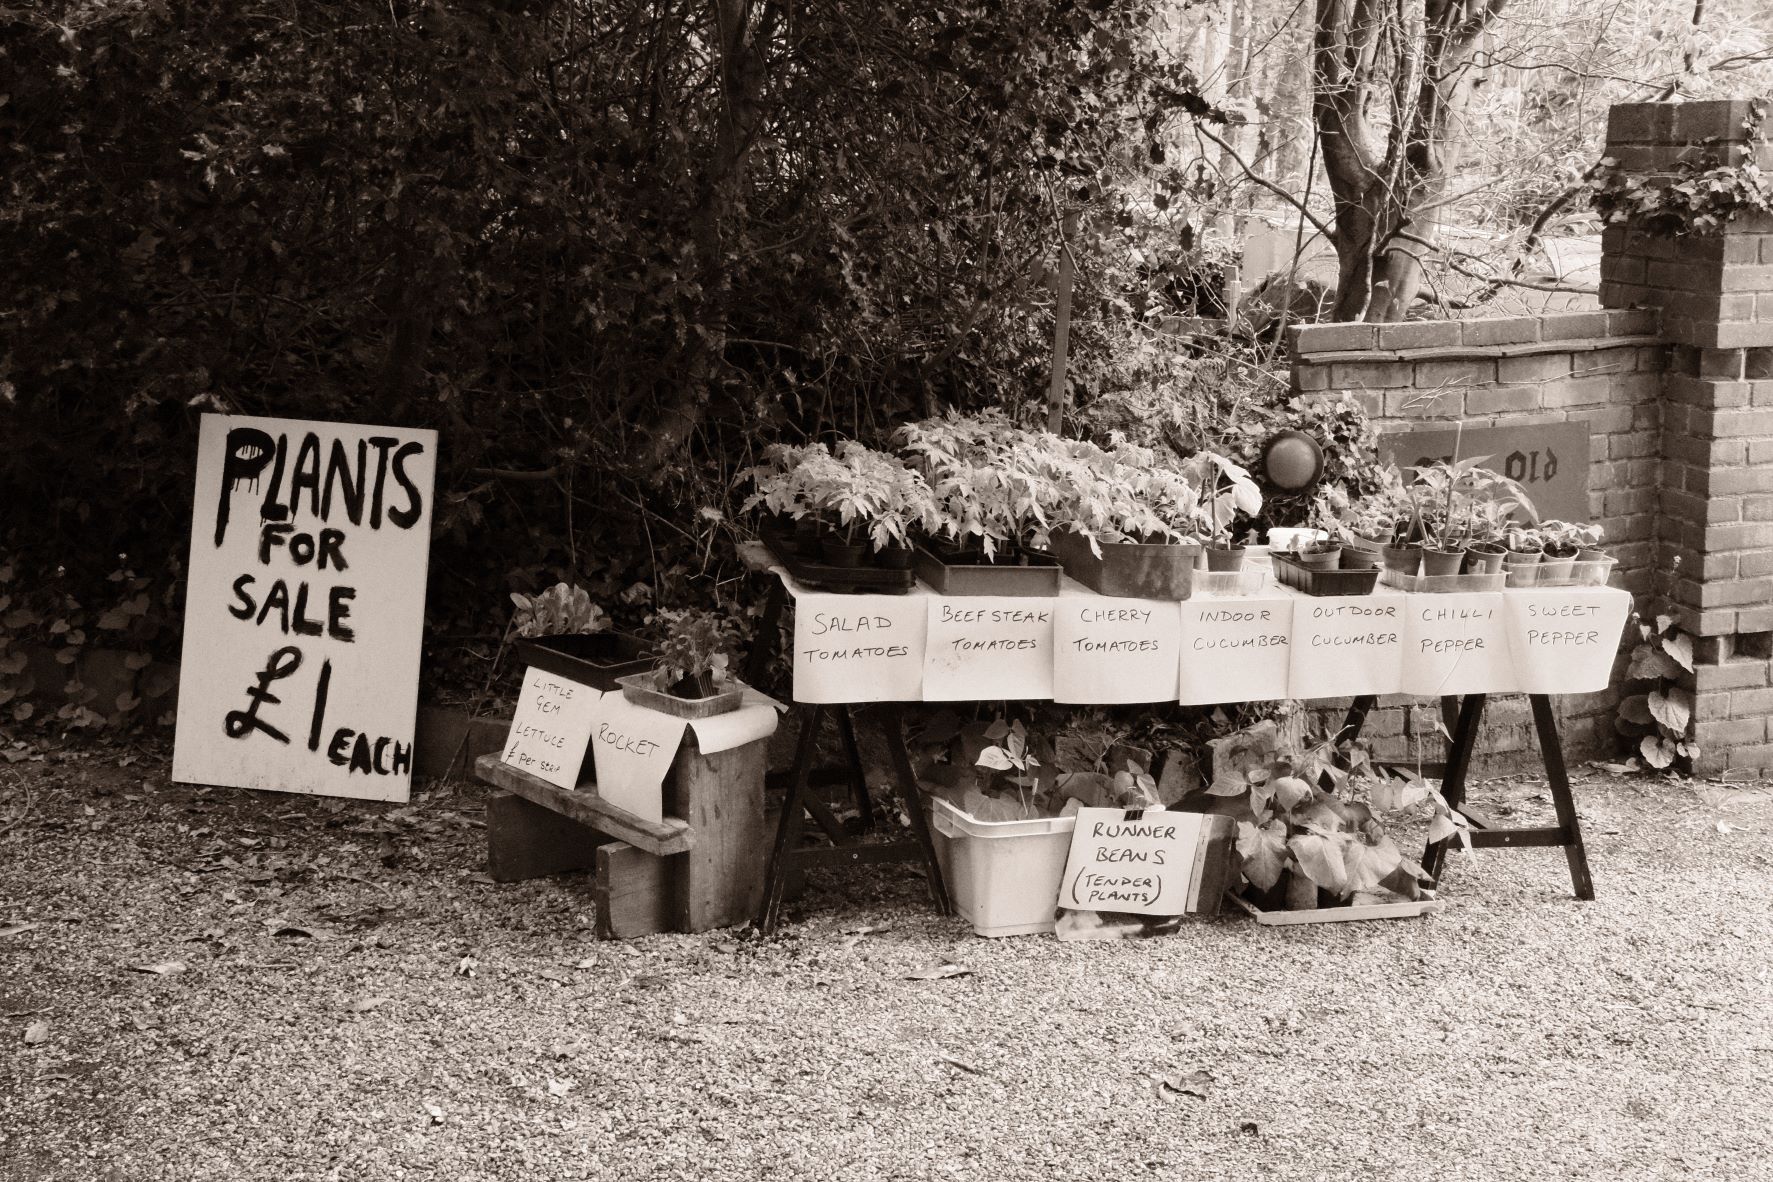 PLANTS
FOR
SALE
£1 EACH
LITTLE
GEM
LETTUCE
£ Per strip
ROCKET
SALAD
TOMATOES
BEEFSTEAK
TOMATOES
CHERRY
TOMATOES
INDOOR
CUCUMBER
OUTDOOR
CUCUMBER
CHILLI
PEPPER
SWEET
PEPPER
RUNNER
BEANS
(TENDER)
PLANTS
Old